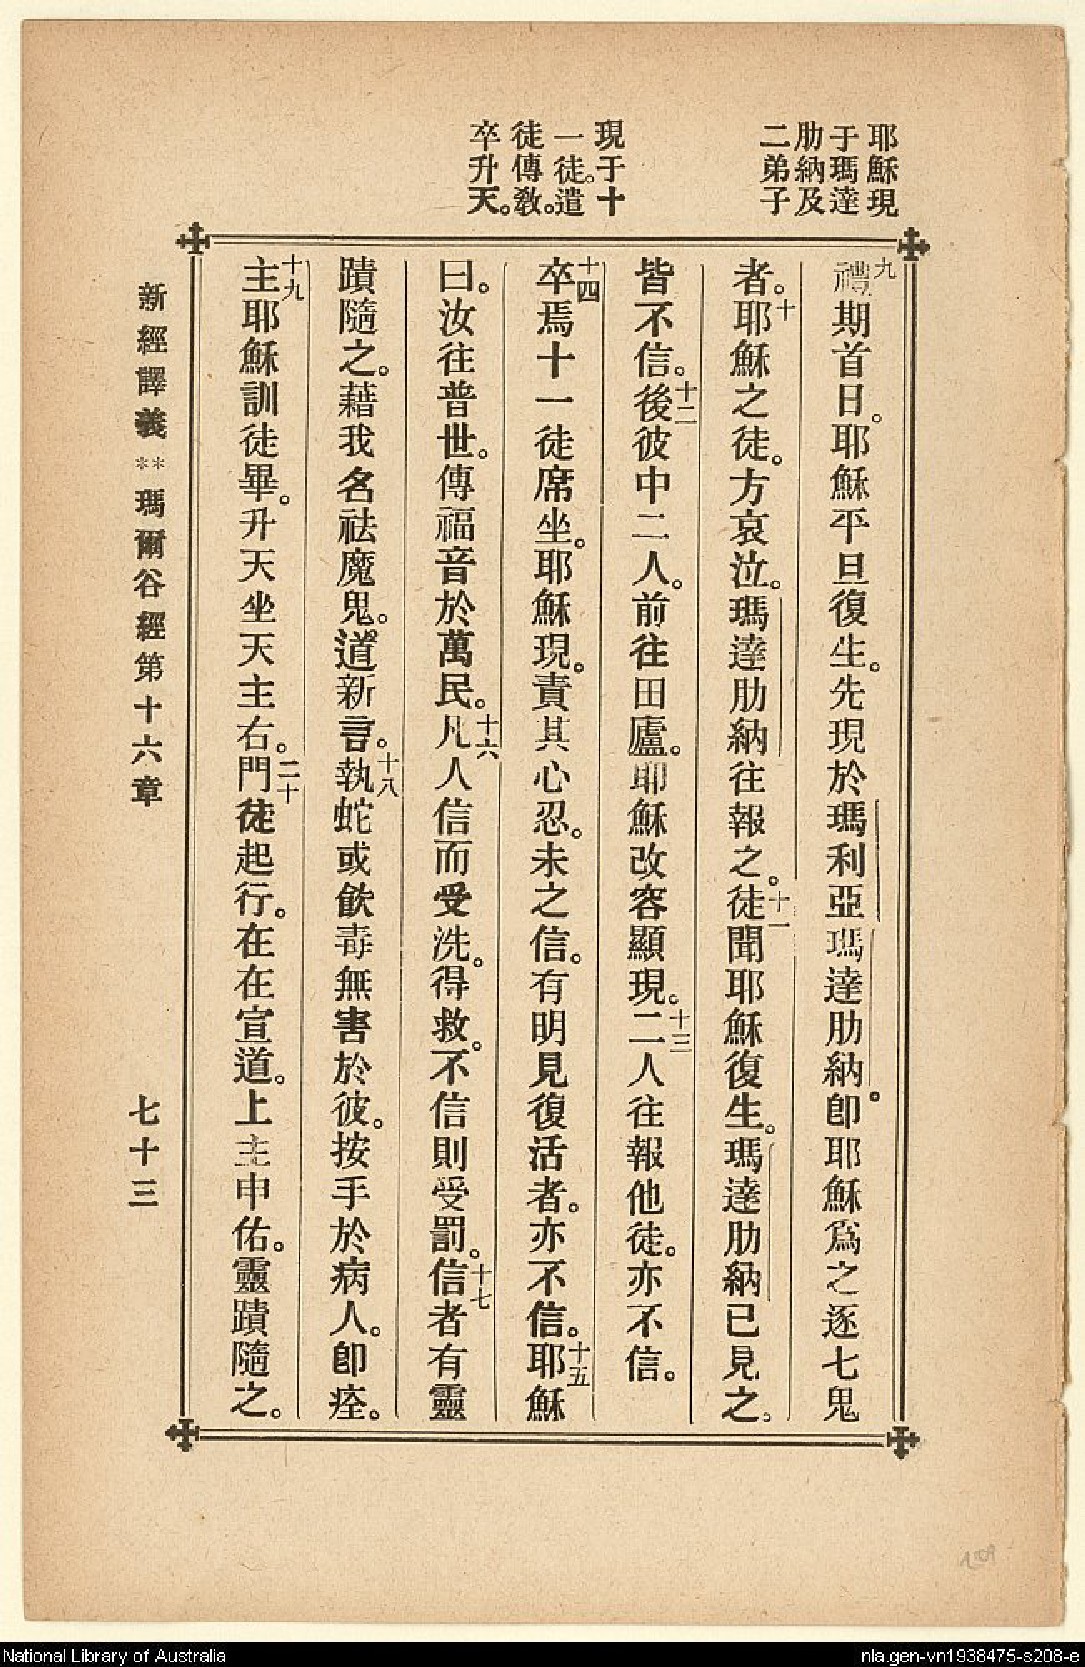 耶穌現
于瑪達
肋納及
二弟子
現于十
一徒。遣
徒傳教。
卒升天。
九禮期首日。耶穌平旦復生。先現於瑪利亞瑪達肋納。卽耶穌爲之逐七鬼
者。十耶穌之徒。方哀泣。瑪達肋納往報之。十一徒聞耶穌復生。瑪達肋納已見之。
皆不信。十二後彼中二人。前往田廬。耶穌改容顯現。十三二人往報他徒。亦不信。
十四卒焉十一徒席坐。耶穌現。責其心忍。未之信。有明見復活者。亦不信。十五耶穌
曰。汝往普世。傳福音於萬民。十六凡人信而受洗。得救。不信則受罰。十七信者有靈
蹟隨之。藉我名祛魔鬼。道新言。十八執蛇或飲毒無害於彼。按手於病人。卽痊。
十九主耶穌訓徒畢。升天坐天主右。二十門徒起行。在在宣道。上主申佑。靈蹟隨之。
新經譯義**瑪爾谷經第十六章 七十三
National Library of Australia
nla.gen-vn1938475-s208-e